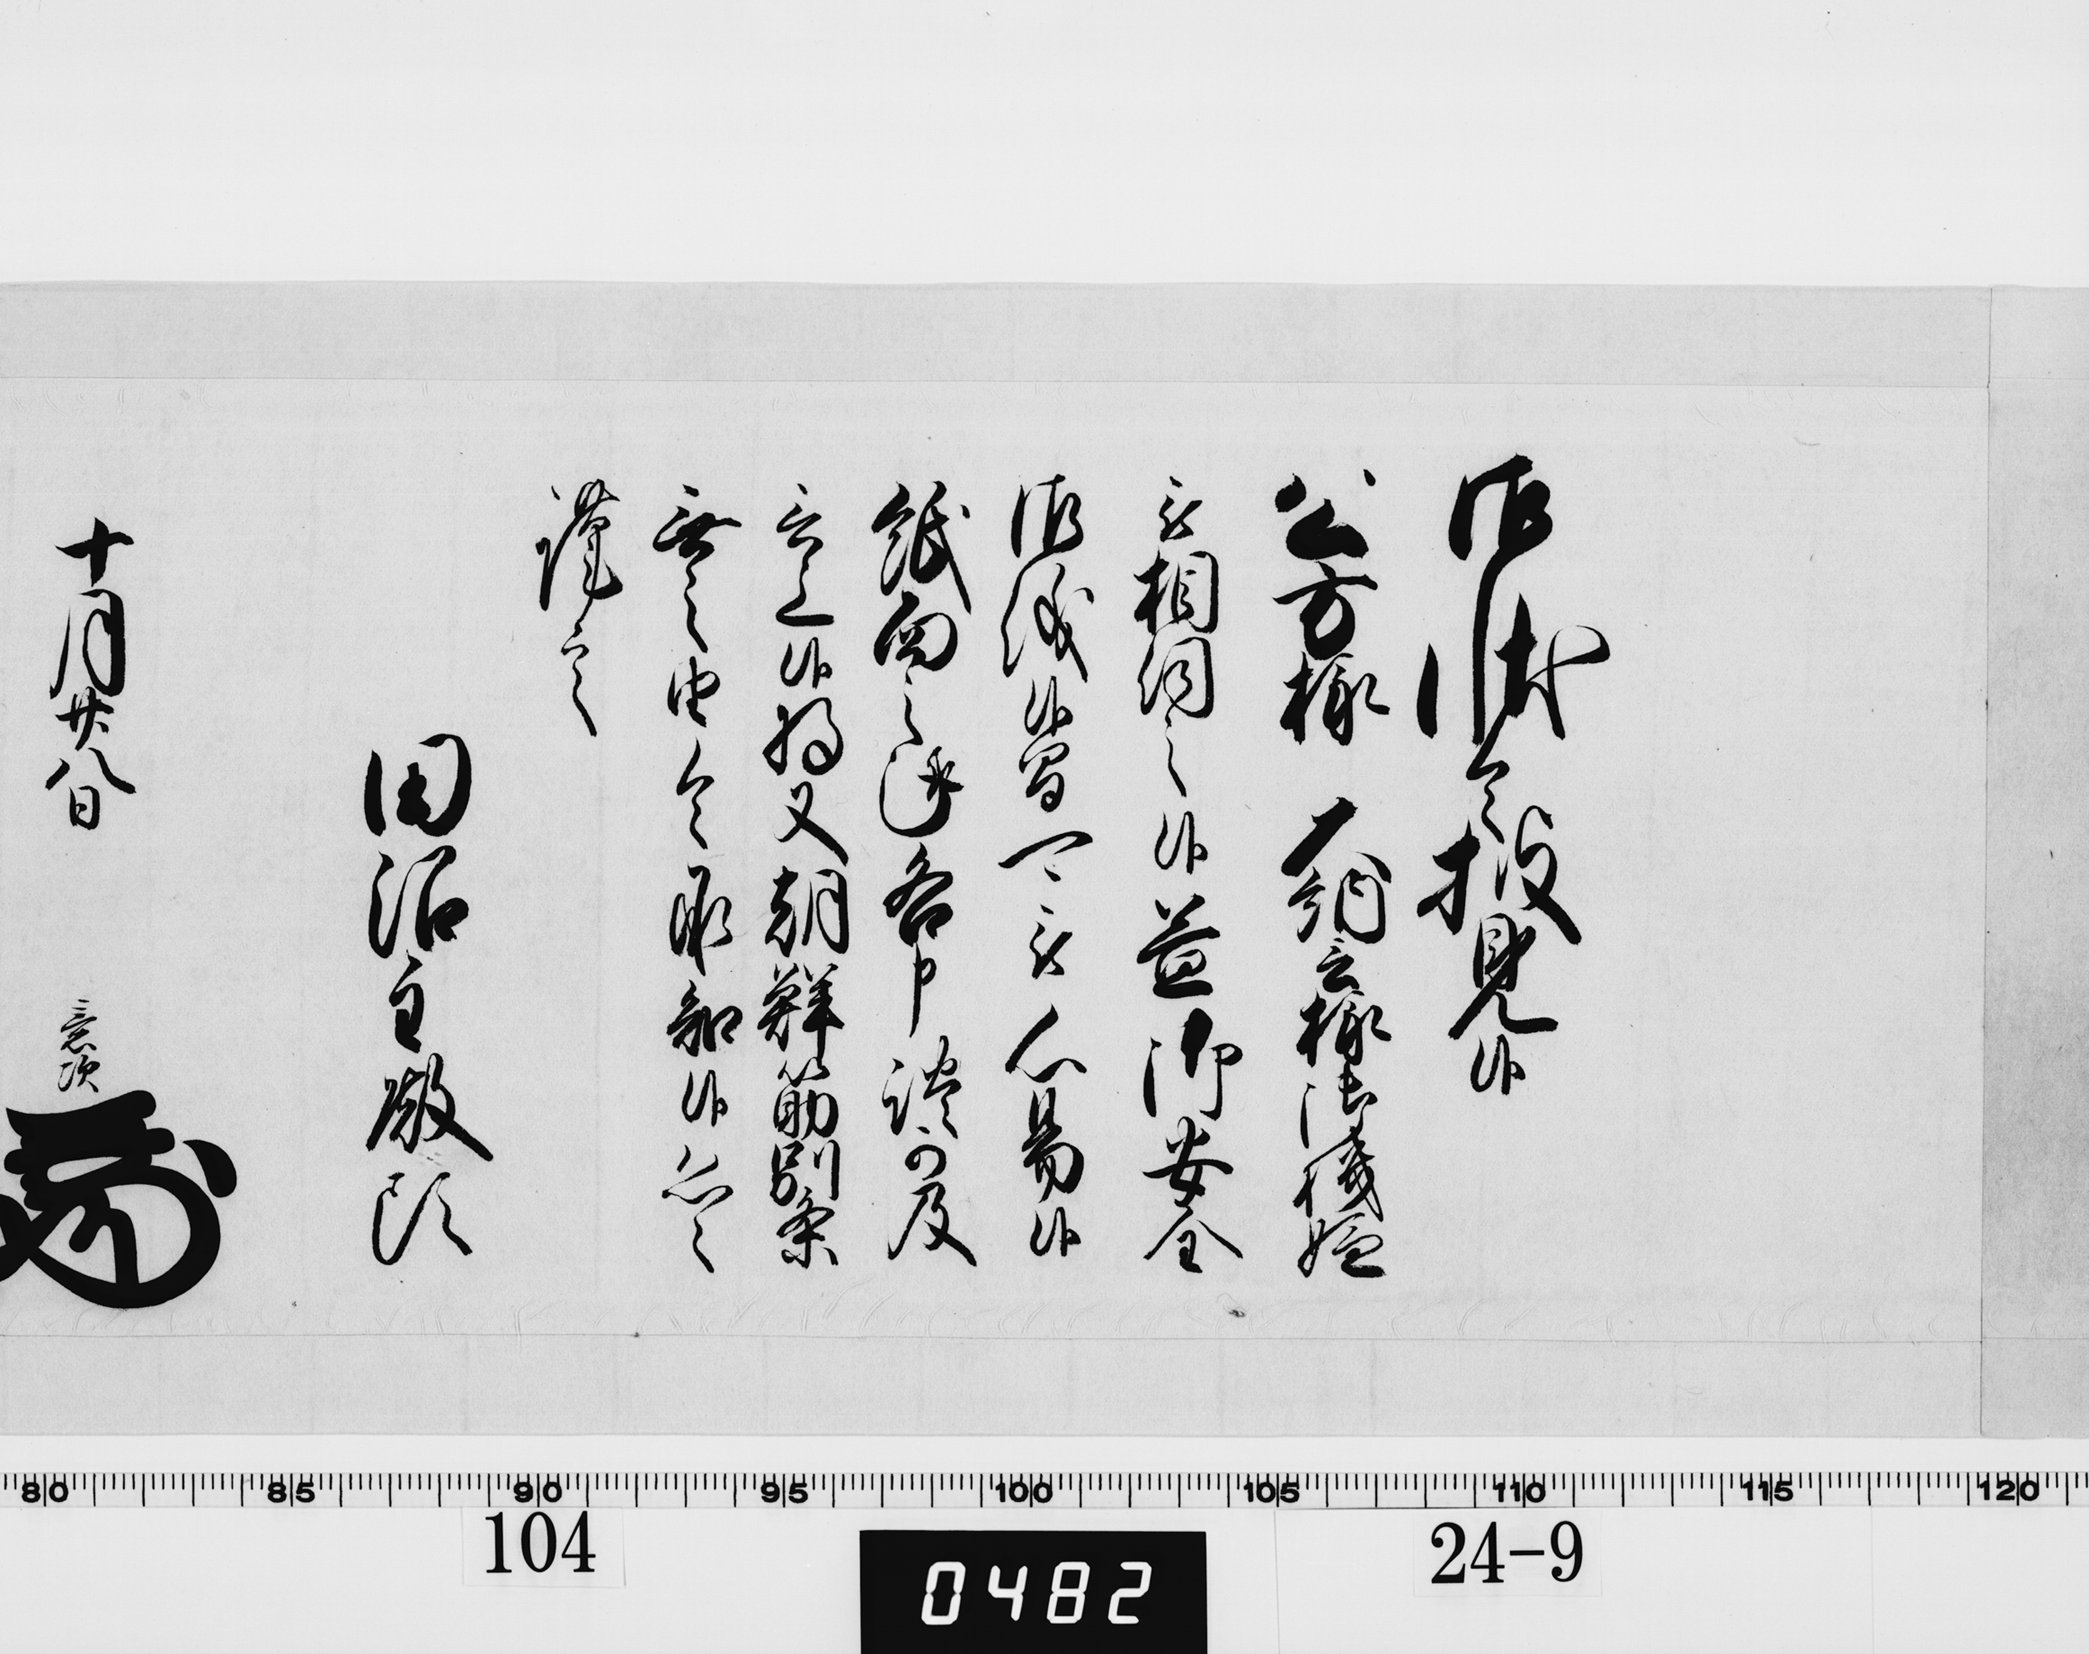 御状令披見候
公方様 大納言様御機嫌
被相伺之候益御安全
御儀候間可被心易候
紙面之趣各申談可及
言上候将又朝鮮筋別条
無之由令承知候恐々
謹言
田沼主殿頭
十月廿八日 意次
80 85 90 95 100 105 110 115 120
104 0482 24-9